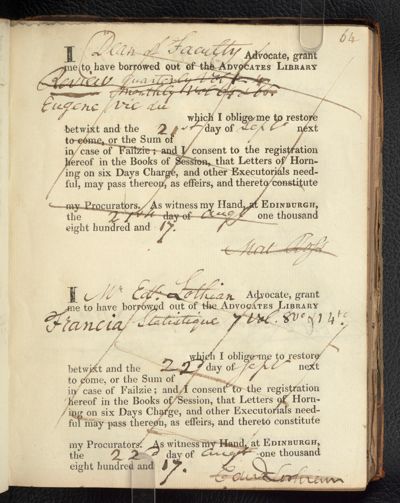 64
I Dean of Faculty Advocate, grant
me to have borrowed out of the ADVOCATES LIBRARY
Review Quarterly
Monthly
Eugene
which I oblige me to restore
betwixt and the 21st day of Septr next
to come, or the Sum of
in case of Failzie; and I consent to the registration
hereof in the Books of Session, that Letters of Horn-
ing on six Days Charge, and other Executorials need-
ful, may pass thereon, as effeirs, and thereto constitute
my Procurators. As witness my Hand, at EDINBURGH,
the day of augt one thousand
eight hundred and 17.
Mat Ross
I Mr Ed. Lothian Advocate, grant
me to have borrowed out of the ADVOCATES LIBRARY
Francia Statistique 7 vol. 8vo & 1 4to.
which I oblige me to restore
betwixt and the 22d day of Sept next
to come, or the Sum of
in case of Failzie; and I consent to the registration
hereof in the Books of Session, that Letters of Horn-
ing on six Days Charge, and other Executorials need-
ful may pass thereon, as effeirs, and thereto constitute
my Procurators. As witness my Hand, at EDINBURGH,
the 22d day of augt one thousand
eight hundred and 17.
Edwd Lothian